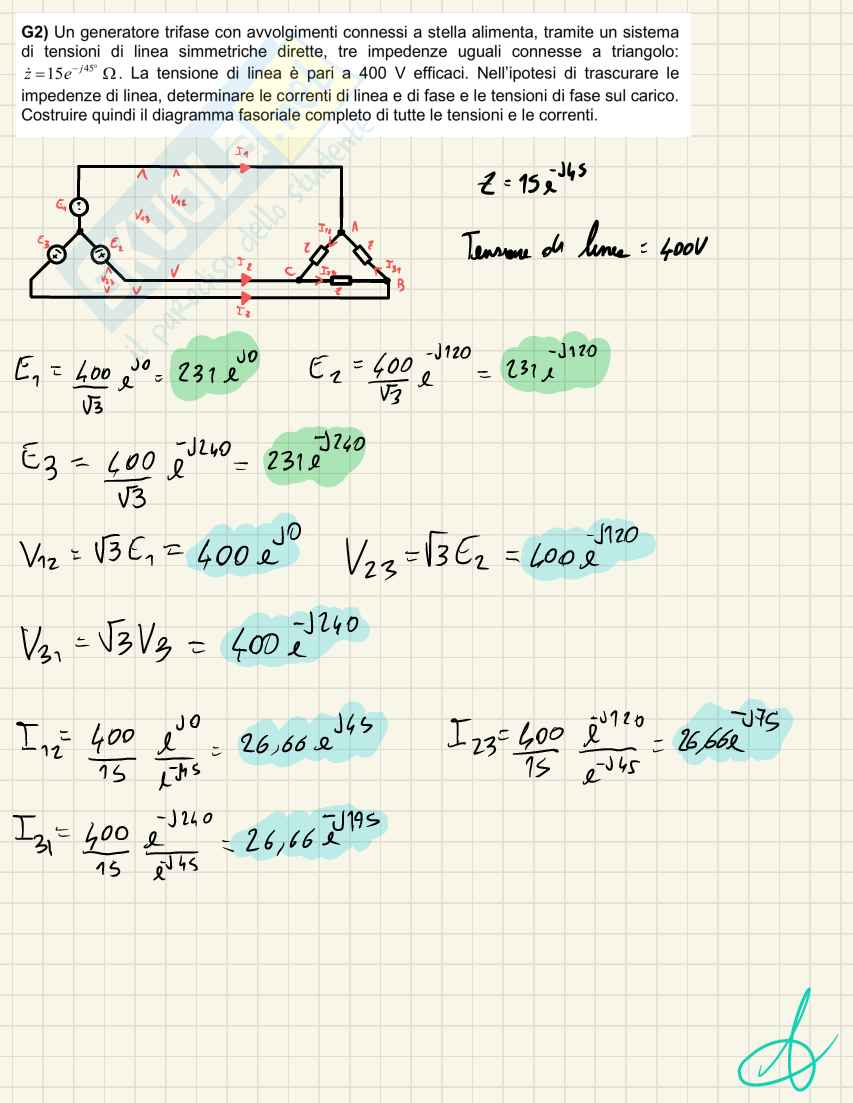 G2) Un generatore trifase con avvolgimenti connessi a stella alimenta, tramite un sistema
di tensioni di linea simmetriche dirette, tre impedenze uguali connesse a triangolo:
ż = 15e^{-j45°} Ω. La tensione di linea è pari a 400 V efficaci. Nell'ipotesi di trascurare le
impedenze di linea, determinare le correnti di linea e di fase e le tensioni di fase sul carico.
Costruire quindi il diagramma fasoriale completo di tutte le tensioni e le correnti.
I1
Z = 15 e^{-J45}
E1 V12
V13
Tensione di linea = 400V
E3 E2 I12 A
Z Z
V23 V I2 C I23 I31
V V Z B
I3
il paradiso dello studente
E1 = 400/√3 e^{J0} = 231 e^{J0} E2 = 400/√3 e^{-J120} = 231 e^{-J120}
E3 = 400/√3 e^{-J240} = 231 e^{-J240}
V12 = √3 E1 = 400 e^{J0} V23 = √3 E2 = 400 e^{-J120}
V31 = √3 V3 = 400 e^{-J240}
I12 = 400/15 e^{J0}/e^{-J45} = 26,66 e^{J45} I23 = 400/15 e^{-J120}/e^{-J45} = 26,66 e^{-J75}
I31 = 400/15 e^{-J240}/e^{-J45} = 26,66 e^{-J195}